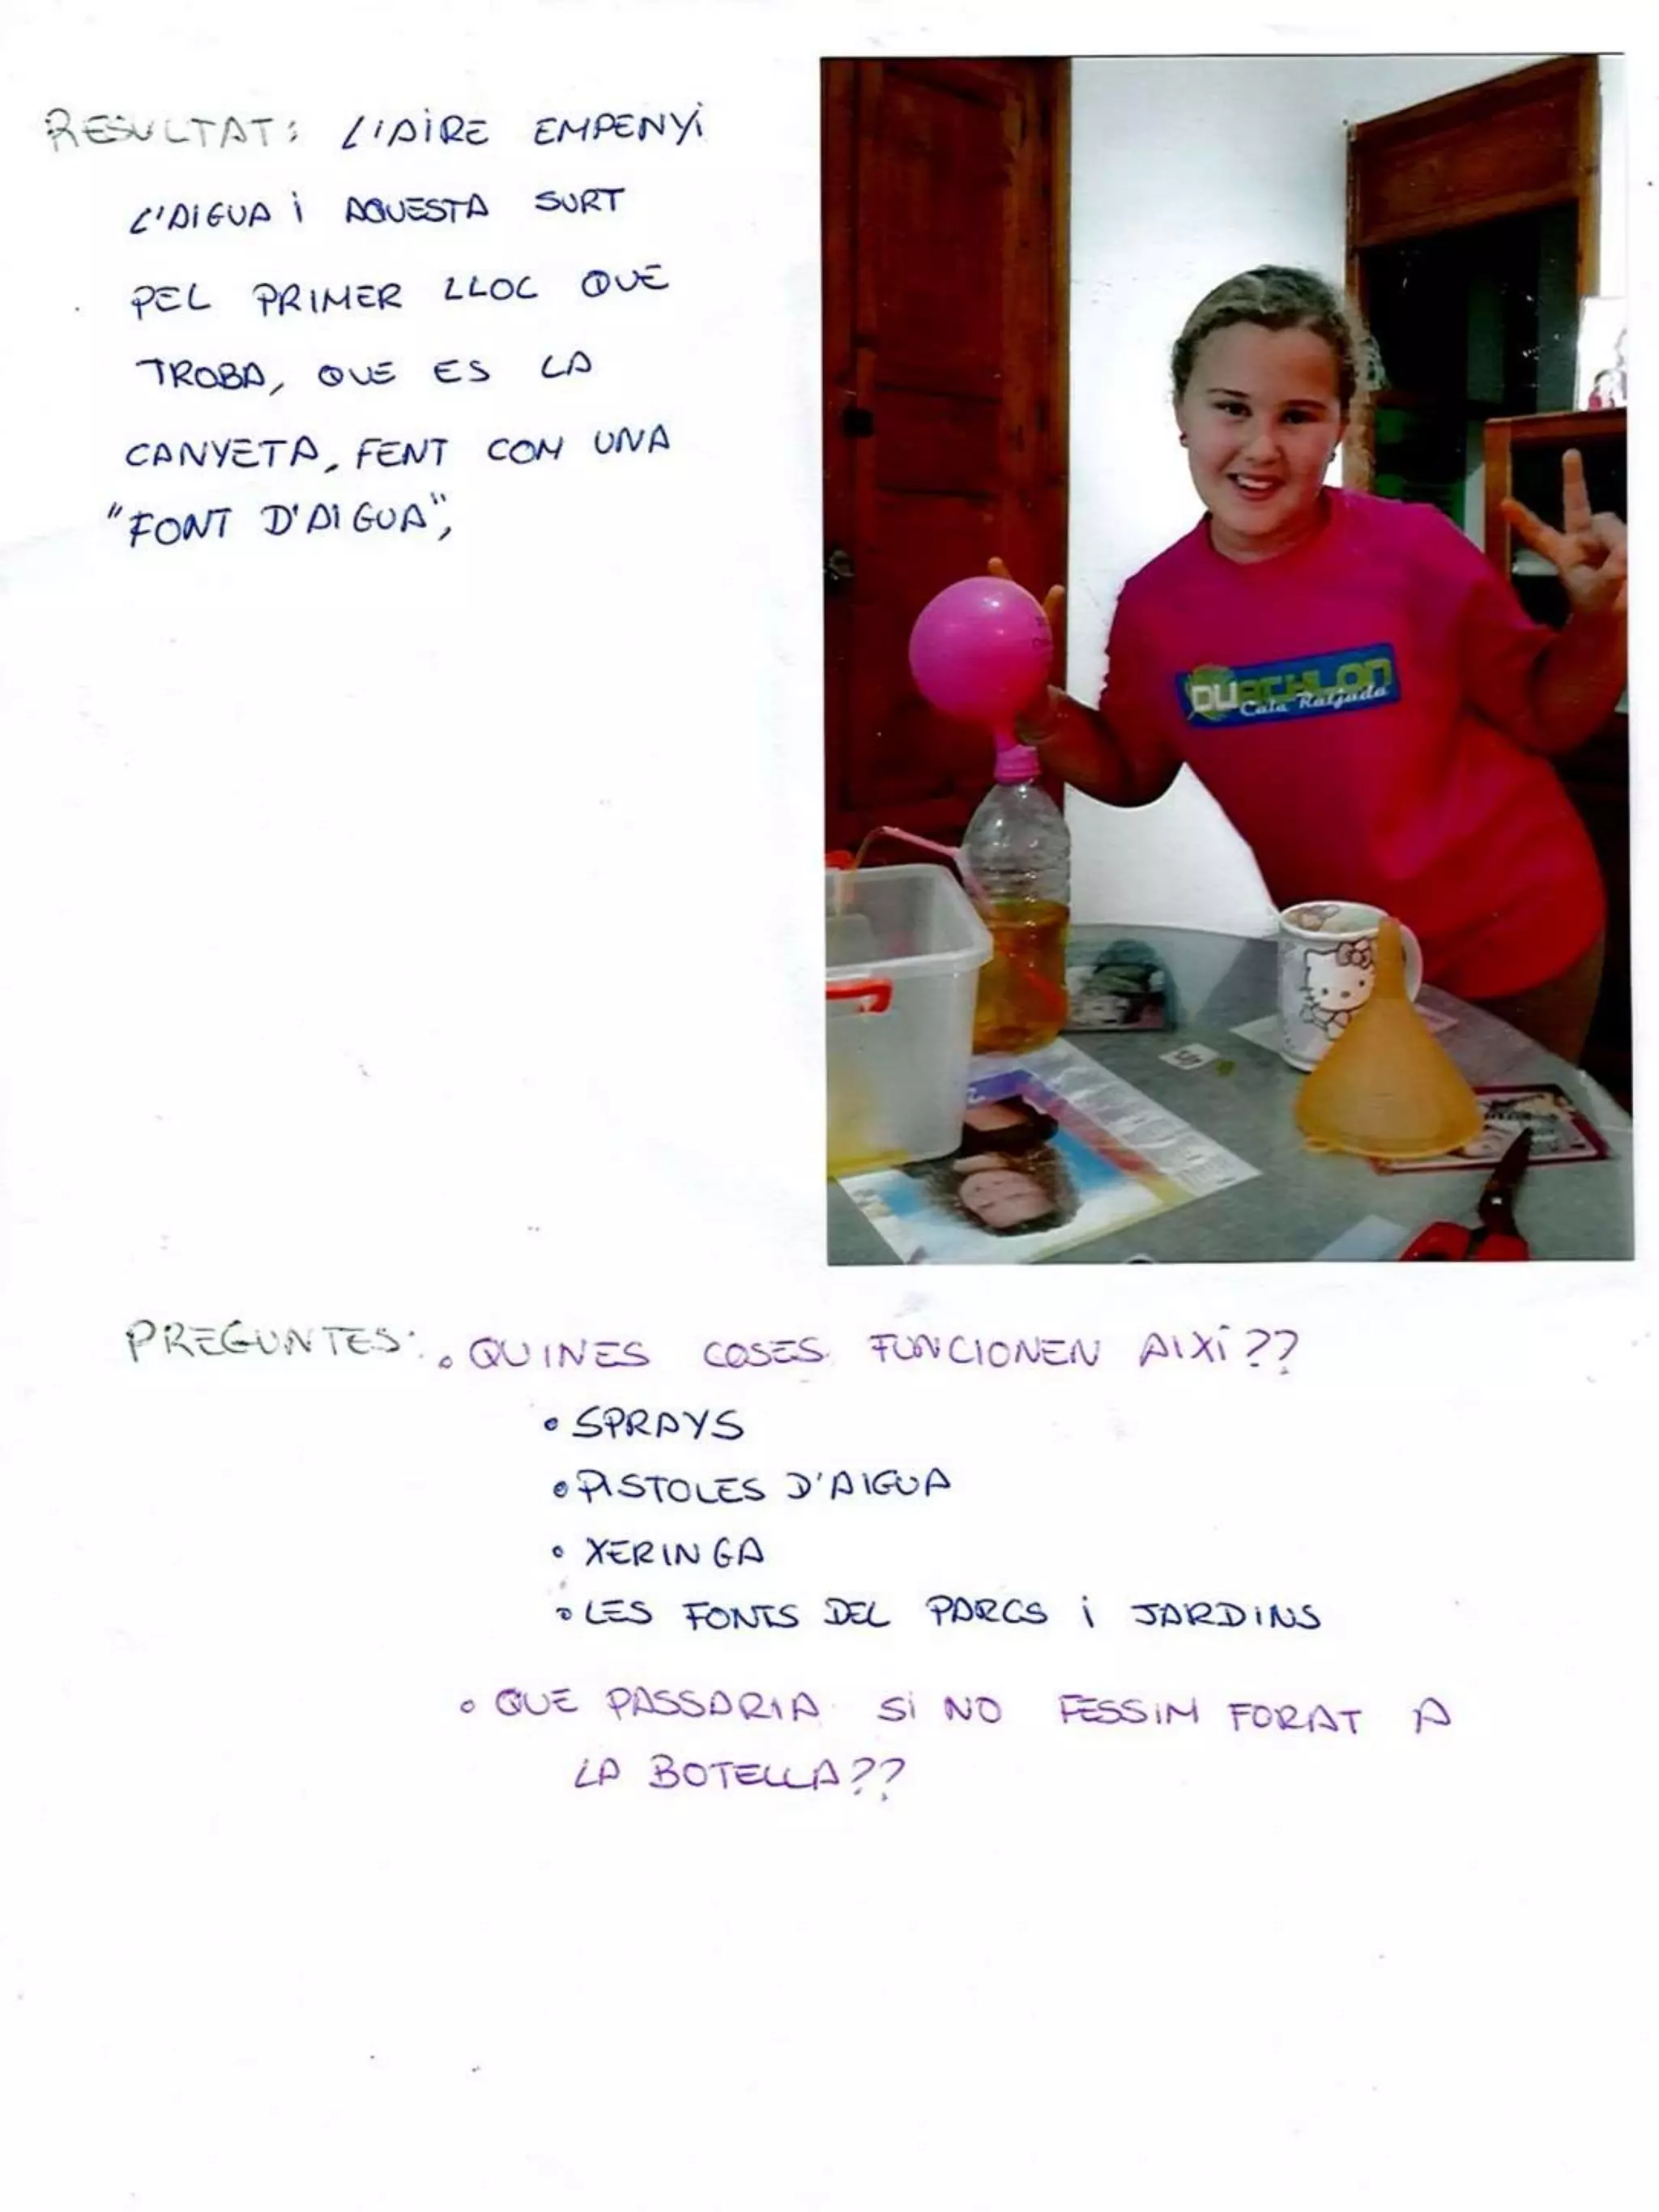 RESULTAT: L'AIRE EMPENYI
L'AIGUA I AQUESTA SURT
PEL PRIMER LLOC QUE
TROBA, QUE ES LA
CANYETA, FENT COM UNA
"FONT D'AIGUA",
DUATHLON
Cala Ratjada
PREGUNTES: • QUINES COSES FUNCIONEN AIXÍ??
• SPRAYS
• PISTOLES D'AIGUA
• XERINGA
• LES FONTS DEL PARCS I JARDINS
• QUE PASSARIA SI NO FESSIM FORAT A
LA BOTELLA??